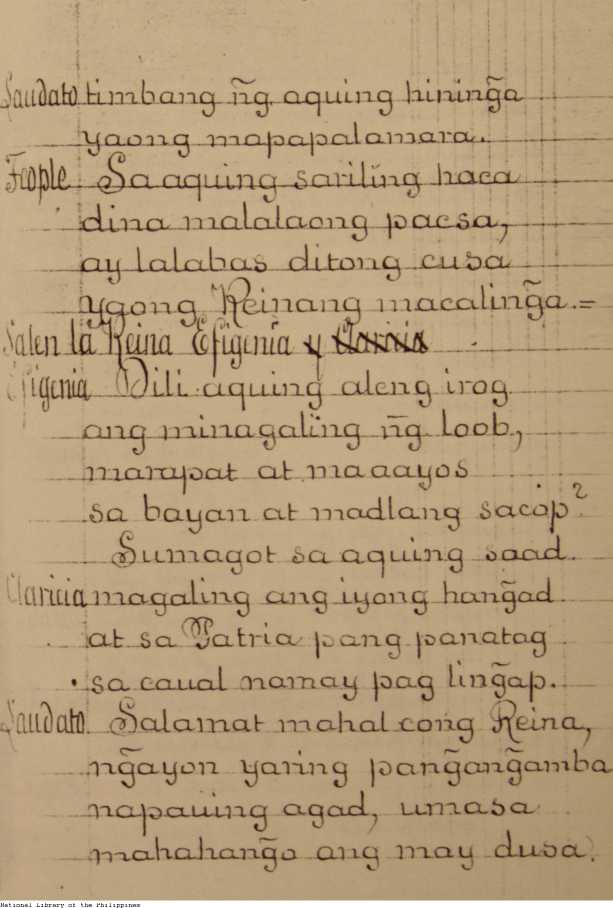 Laudato timbang n͠g aquing hining̃a
yaong mapapalamara.
Feople Sa aquing sariling haca
dina malalaong pacsa,
ay lalabas ditong cusa
ygong Reinang macaling̃a.=
Salen la Reina Efigenia y
Efigenia Dili aquing aleng irog
ang minagaling n͠g loob,
marapat at maaayos
sa bayan at madlang sacop?
Sumagot sa aquing saad.
Claricia magaling ang iyong hang̃ad
at sa Patria pang panatag
sa caual namay pag ling̃ap.
Laudato. Salamat mahal cong Reina,
ng̃ayon yaring pang̃ang̃amba
napauing agad, umasa
mahahang̃o ang may dusa.
National Library of the Philippines